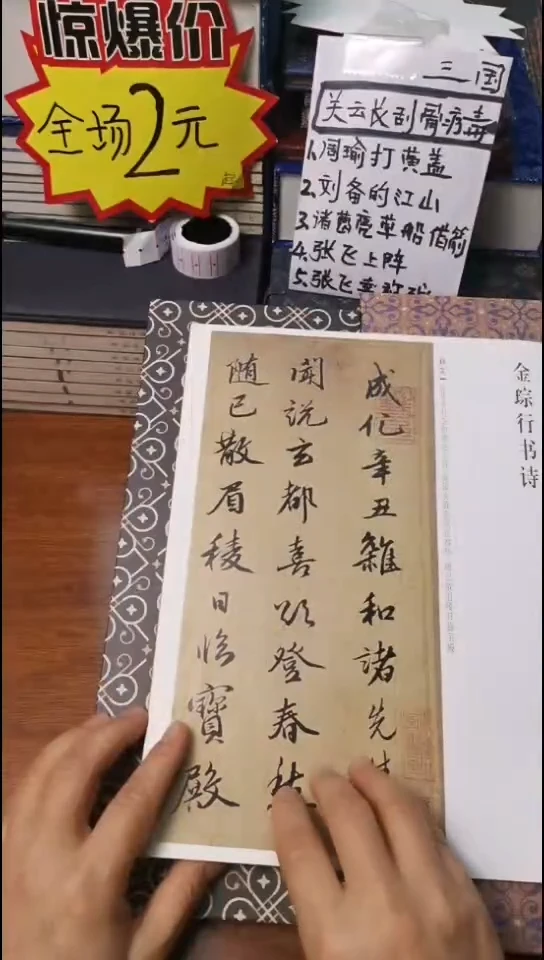 惊爆价
全场2元
三国
关云长刮骨疗毒
1.周瑜打黄盖
2.刘备的江山
3.诸葛亮草船借箭
4.张飞上阵
5.张飞
金琮行书诗
成化辛丑杂和诸先生
闻说玄都喜
登春
随已散眉棱日临寶殿